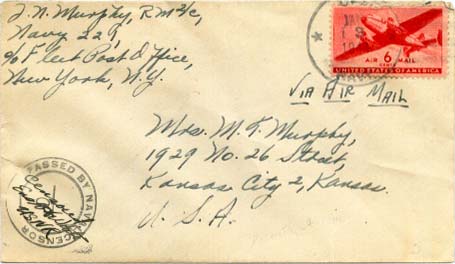 J. N. Murphy, RM 2/c,
Navy 229,
c/o Fleet Post Office,
New York, N.Y.
AIR 6 MAIL
CENTS
UNITED STATES OF AMERICA
VIA AIR MAIL
Mrs. M. F. Murphy,
1929 No. 26 Street,
Kansas City 2, Kansas.
U. S. A.
PASSED BY NAVAL CENSOR